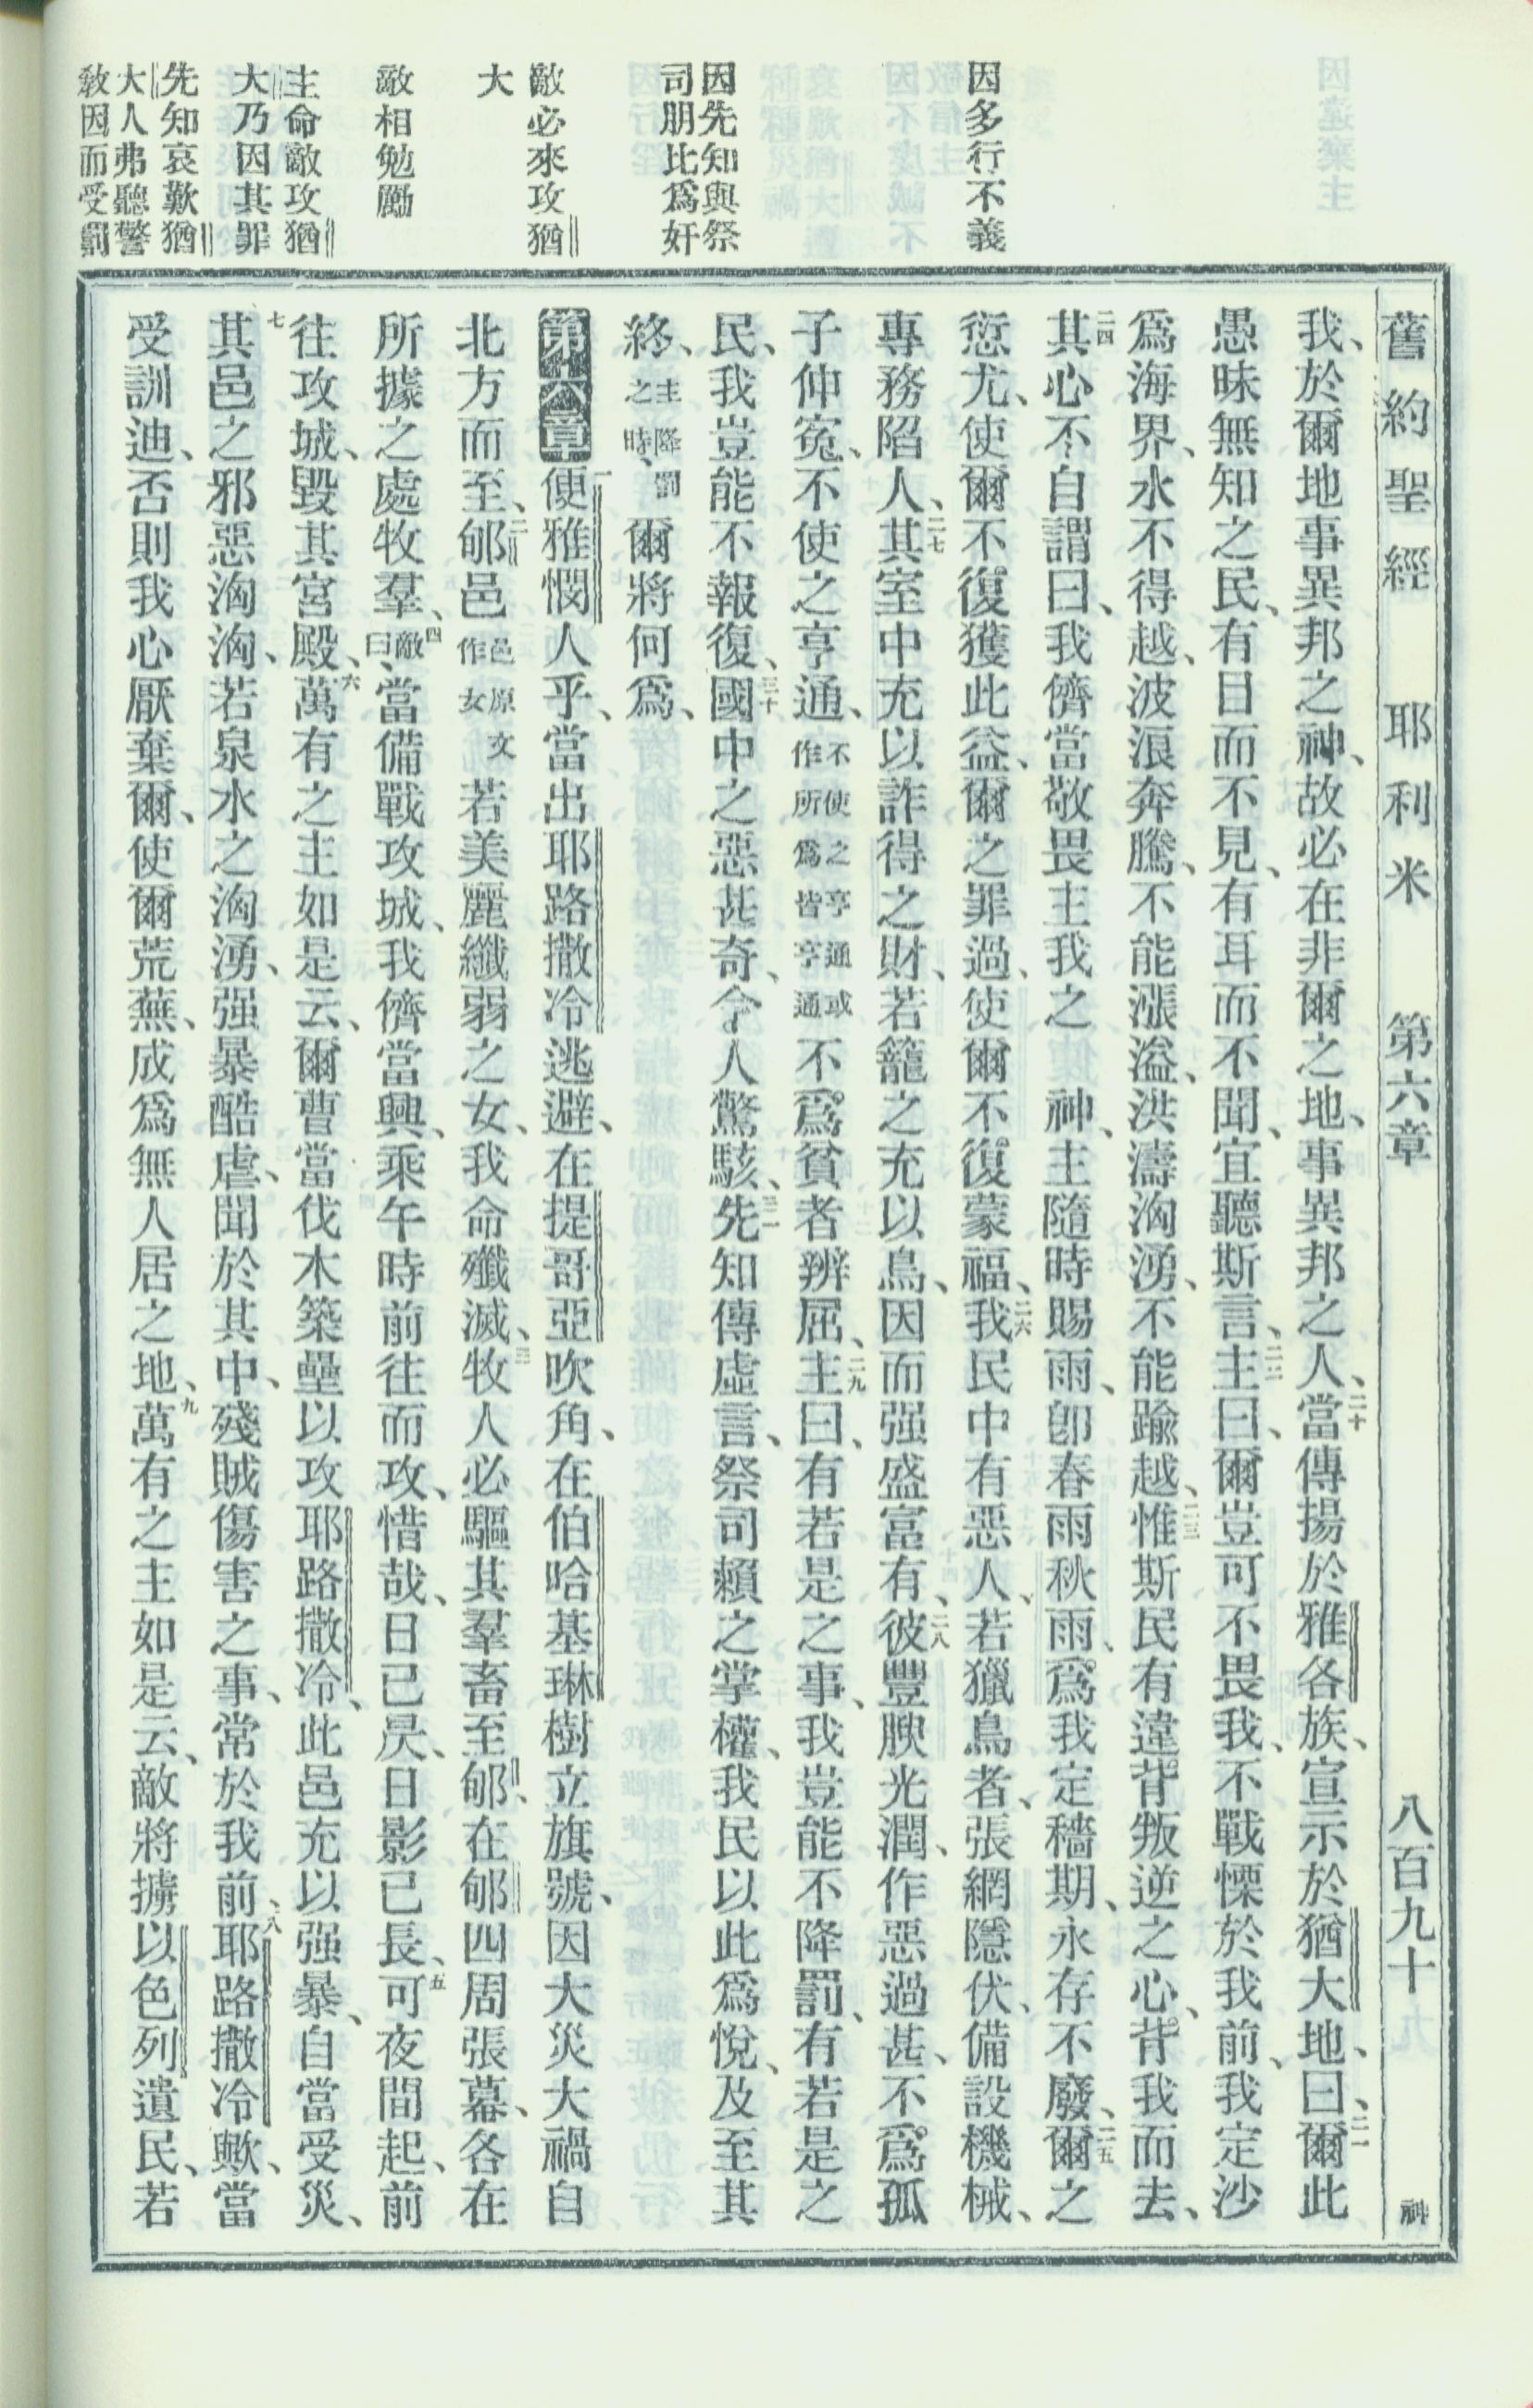 舊約聖經 耶利米 第六章 八百九十 神
因多行不義
因先知與祭
司朋比爲奸
敵必來攻猶
大
敵相勉勵
主命敵攻猶
大乃因其罪
先知哀歎猶
大人弗聽警
敎因而受罰
我、於爾地事異邦之神、故必在非爾之地、事異邦之人、二十當傳揚於雅各族、宣示於猶大地、曰、二一爾此
愚昧無知之民、有目而不見、有耳而不聞、宜聽斯言、二二主曰、爾豈可不畏我、不戰慄於我前、我定沙
爲海界、水不得越、波浪奔騰、不能漲溢、洪濤洶湧、不能踰越、二三惟斯民有違背叛逆之心、背我而去、
二四其心不自謂曰、我儕當敬畏主我之 神、主隨時賜雨、卽春雨秋雨、爲我定穡期、永存不廢、二五爾之
愆尤、使爾不復獲此益、爾之罪過、使爾不復蒙福、二六我民中有惡人、若獵鳥者、張網隱伏、備設機械、
專務陷人、二七其室中充以詐得之財、若籠之充以鳥、因而强盛富有、二八彼豐腴光潤、作惡過甚、不爲孤
子伸寃、不使之亨通、不使之亨通或作所爲皆亨通不爲貧者辨屈、二九主曰、有若是之事、我豈能不降罰、有若是之
民、我豈能不報復、三十國中之惡甚奇、令人驚駭、三一先知傳虛言、祭司賴之掌權、我民以此爲悅、及至其
終、主降罰之時、爾將何爲、
第六章一便雅憫人乎、當出耶路撒冷逃避、在提哥亞吹角、在伯哈基琳樹立旗號、因大災大禍自
北方而至、二郇邑邑原文作女若美麗纖弱之女、我命殲滅、三牧人必驅其羣畜至郇、在郇四周張幕、各在
所據之處牧羣、四敵曰、當備戰攻城、我儕當興、乘午時前往而攻、惜哉、日已昃、日影已長、五可夜間起、前
往攻城、毀其宮殿、六萬有之主如是云、爾曹當伐木築壘以攻耶路撒冷、此邑充以强暴、自當受災、
七其邑之邪惡洶洶、若泉水之洶湧、强暴酷虐、聞於其中、殘賊傷害之事、常於我前、八耶路撒冷歟、當
受訓迪、否則我心厭棄爾、使爾荒蕪、成爲無人居之地、九萬有之主如是云、敵將擄以色列遺民、若